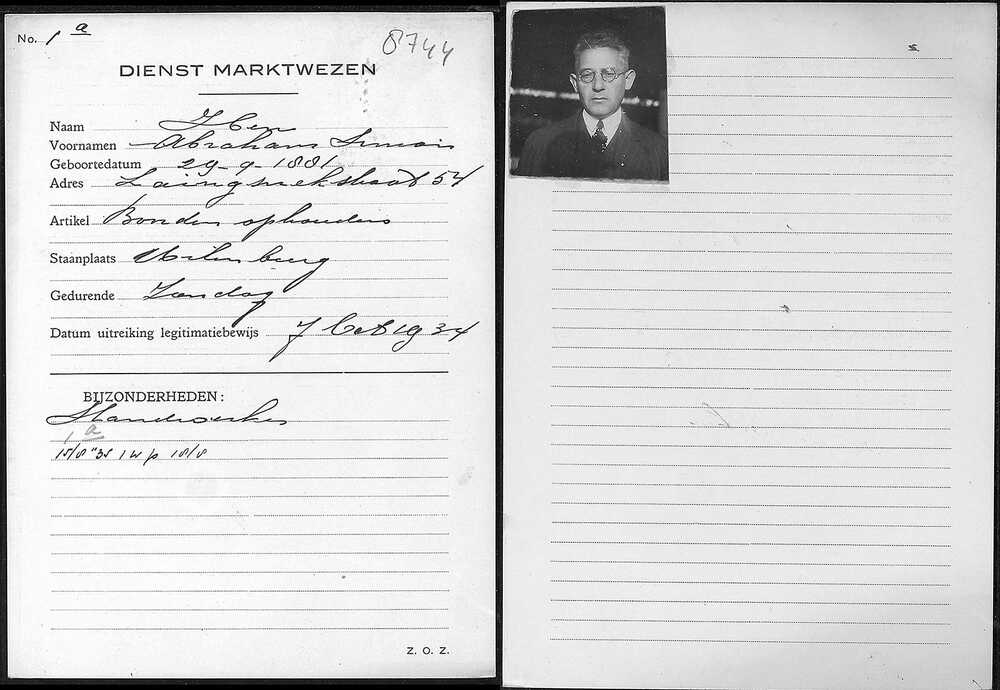 No. 1 a
8744
DIENST MARKTWEZEN
Naam
Voornamen Abraham Simon
Geboortedatum 29-9-1881
Adres Laingsnekstraat 54
Artikel Borden ophouders
Staanplaats Uilenburg
Gedurende Zondag
Datum uitreiking legitimatiebewijs 7 1934
BIJZONDERHEDEN:
Standwerker
1 a
15/8 "35 1 w p 18/8
Z. O. Z.